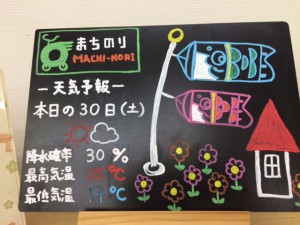 まちのり
MACHI-NORI
ー天気予報ー
本日の30日(土)
降水確率 30 %
最高気温 ℃
最低気温 ℃